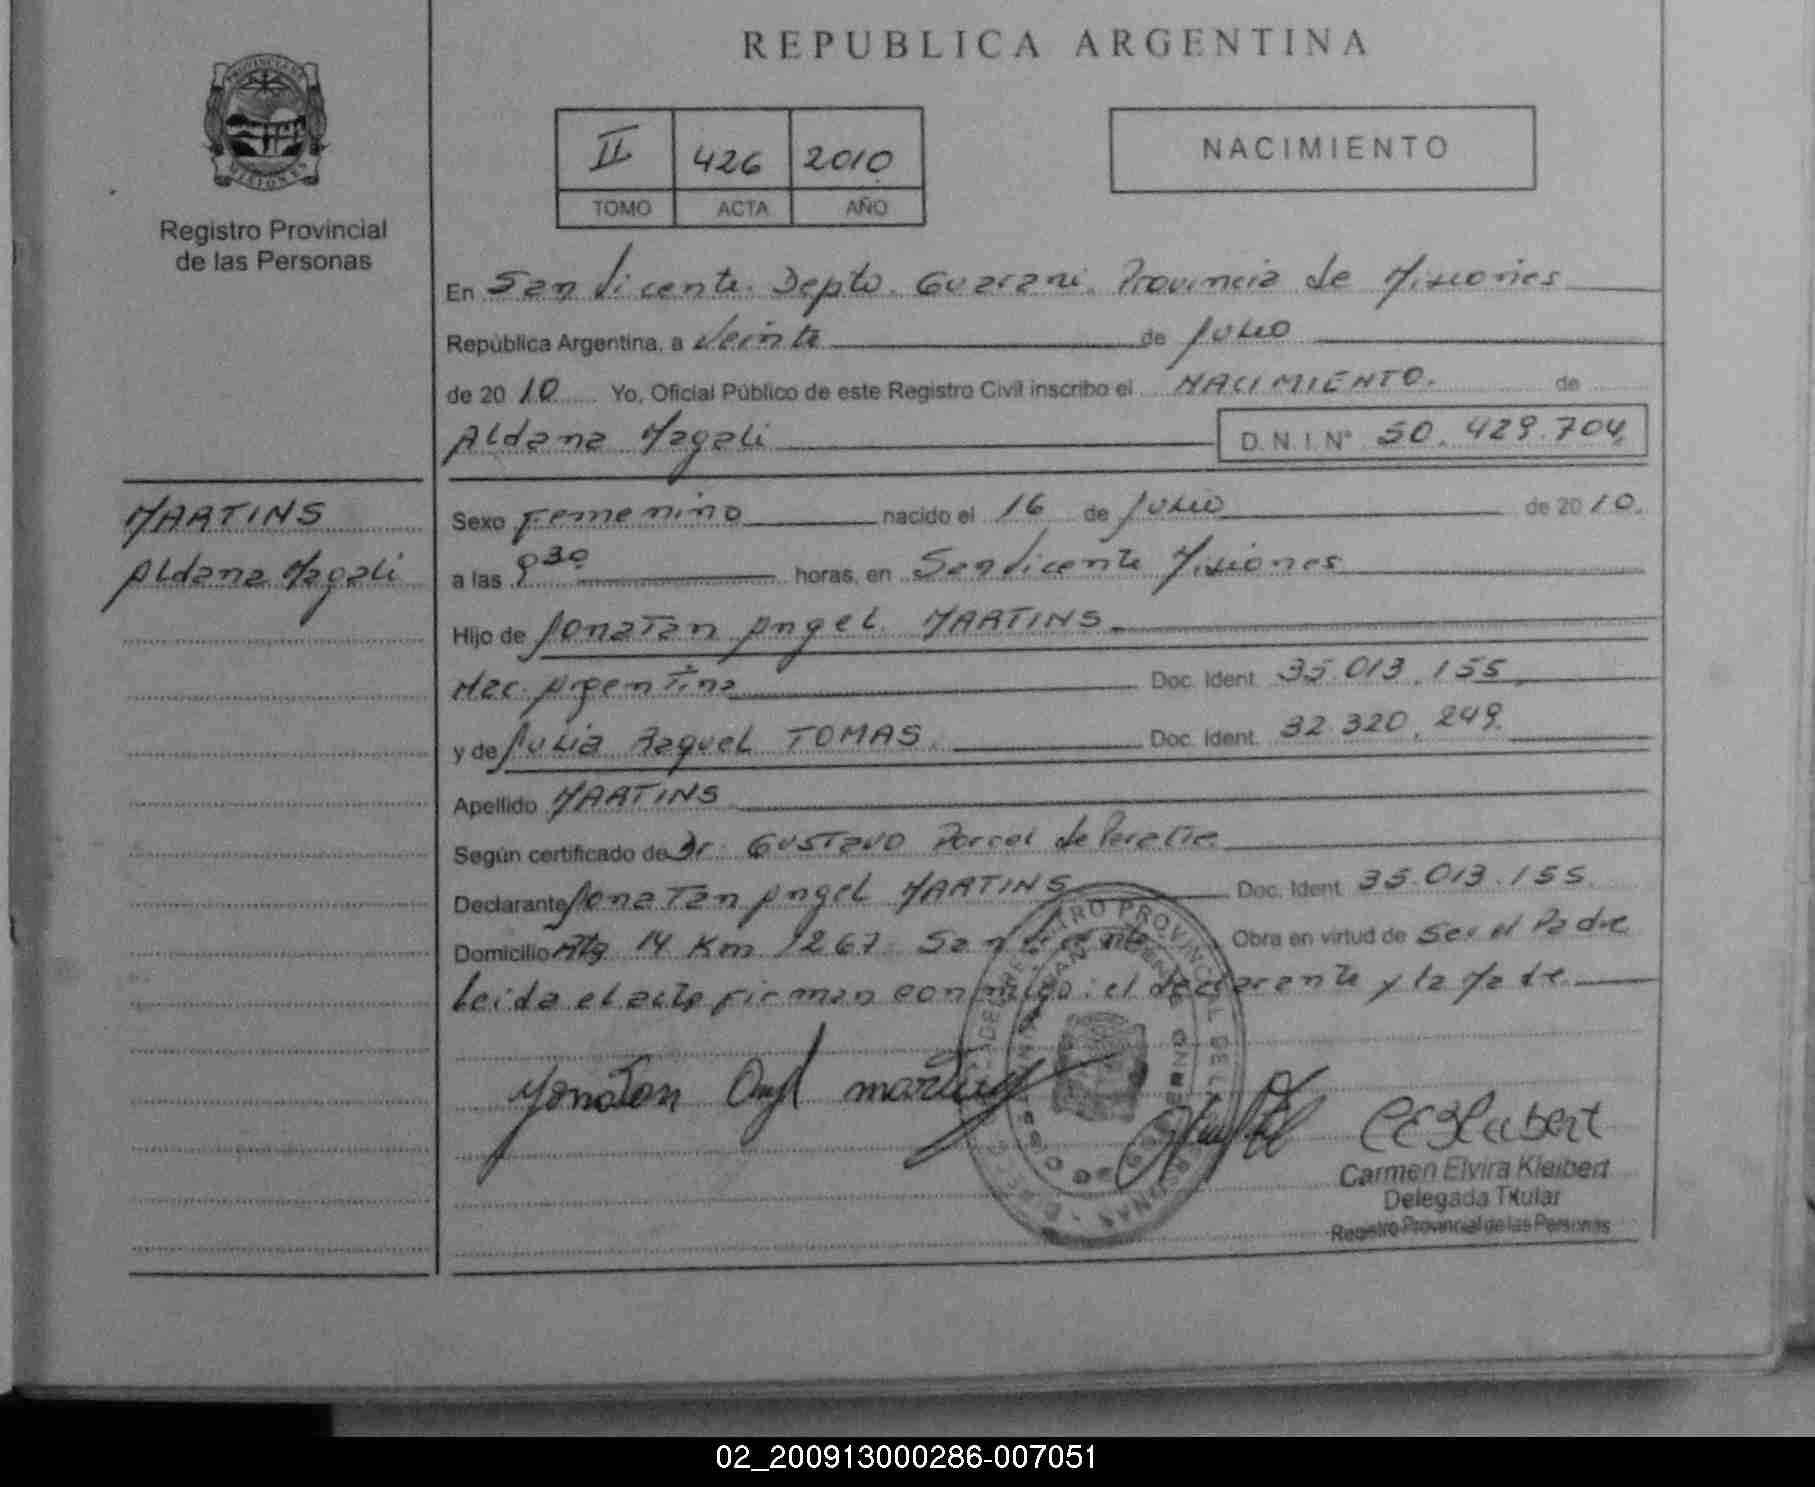 REPUBLICA ARGENTINA
PROVINCIA DE
MISIONES
Registro Provincial
de las Personas
II 426 2010
TOMO ACTA AÑO
NACIMIENTO
En San Vicente. Depto. Guarani. Provincia de Misiones
República Argentina, a Veinte de Julio
de 2010 Yo, Oficial Público de este Registro Civil inscribo el NACIMIENTO. de
Aldana Magali D.N.I. Nº 50.429.704
MARTINS
Aldana Magali
Sexo Femenino nacido el 16 de Julio de 2010.
a las 9 30 horas, en San Vicente Misiones
Hijo de Jonatan Angel MARTINS
Nac. Argentina Doc. Ident. 35.013.155
y de Julia Raquel TOMAS. Doc. Ident. 32.320.249.
Apellido MARTINS
Según certificado de Dr. Gustavo Porcel de Peralta
Declarante Jonatan Angel MARTINS Doc. Ident. 35.013.155.
Domicilio Rta 14 Km 1267. San Vicente Obra en virtud de Ser el Padre
Leida el acta firman conmigo: el declarante y la Madre.
REGISTRO PROVINCIAL DE LAS PERSONAS
Jonatan Angel Martins
CEKleibert
Carmen Elvira Kleibert
Delegada Titular
Registro Provincial de las Personas
02_200913000286-007051